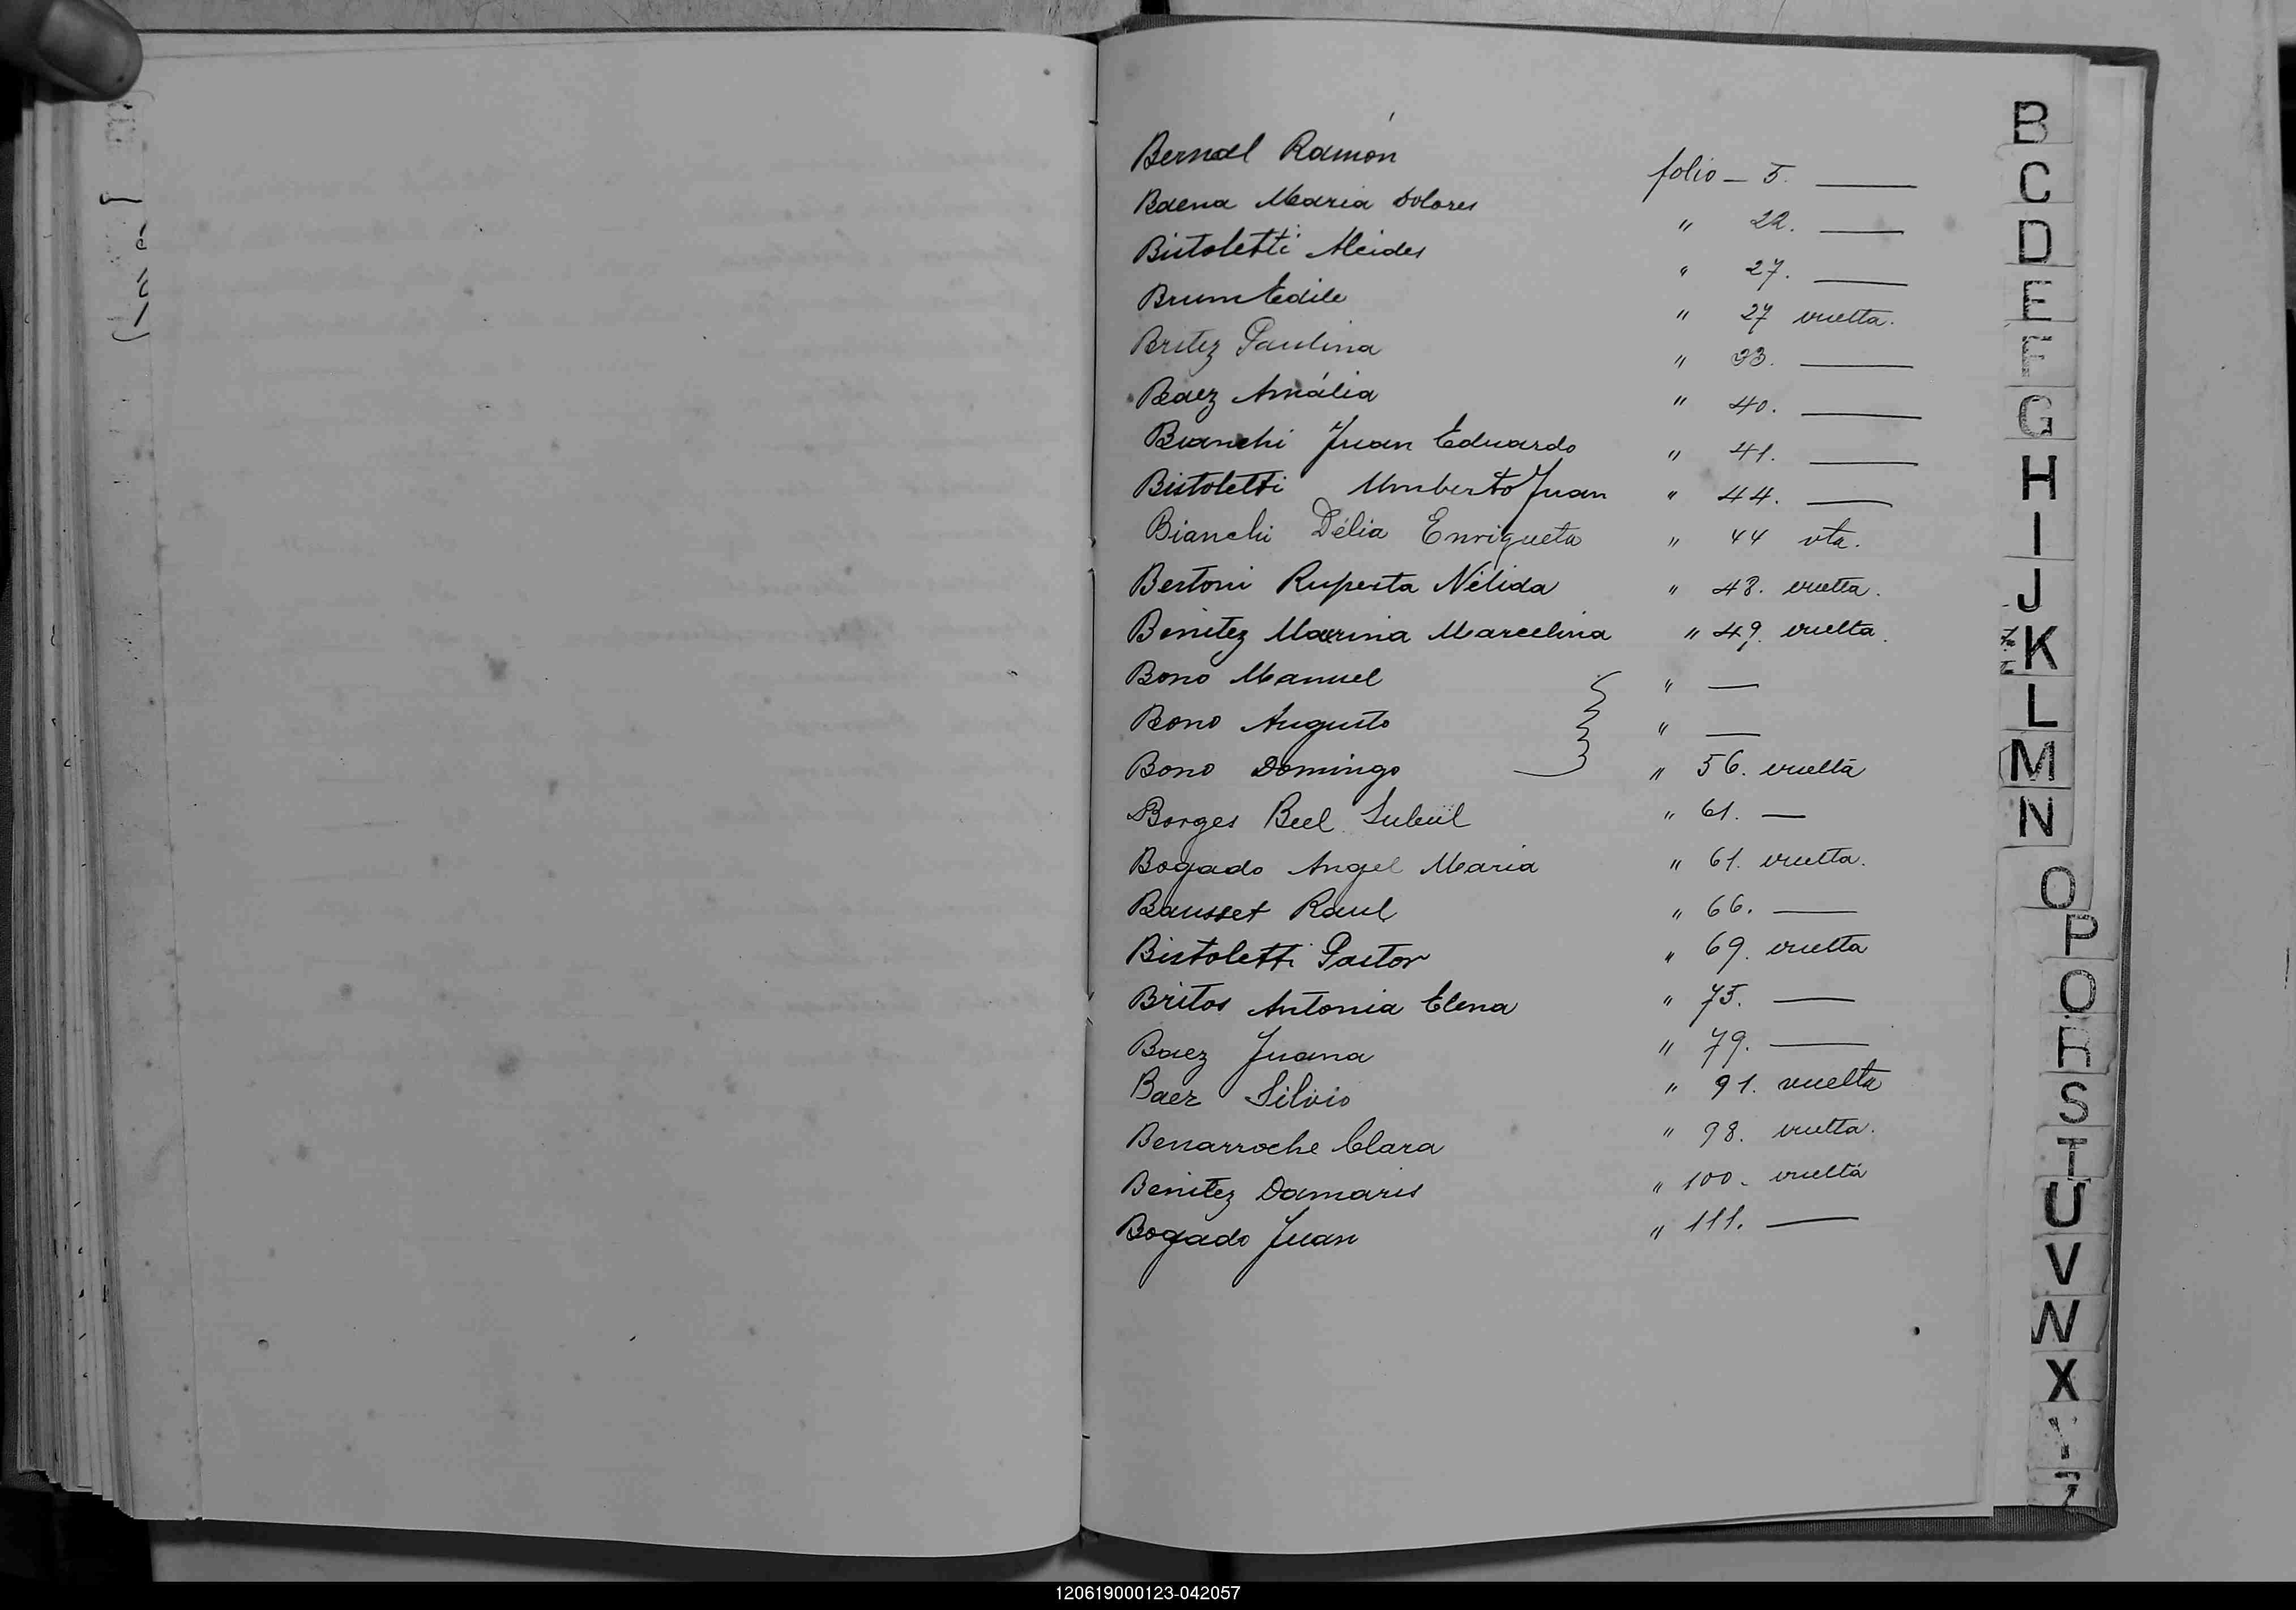 Bernal Ramón folio — 5. —
Baena Maria Dolores " 22. —
Bistoletti Alcides " 27. —
Brum Edile " 27 vuelta.
Britez Paulina " 33. —
Baez Amália " 40. —
Bianchi Juan Eduardo " 41. —
Bistoletti Umberto Juan " 44. —
Bianchi Délia Enriqueta " 44 vta.
Bertoni Ruperta Nélida " 48. vuelta.
Benitez Marina Marcelina " 49. vuelta.
Bono Manuel " —
Bono Augusto " —
Bono Domingo " 56. vuelta
Borges " 61. —
Bogado Angel Maria " 61. vuelta.
Bausset Raul " 66. —
Bistoletti Pastor " 69. vuelta
Britos Antonia Elena " 75. —
Baez Juana " 79. —
Baez Silvio " 91. vuelta
Benarroche Clara " 98. vuelta.
Benitez Damaris " 100. vuelta
Bogado Juan " 111. —
B
C
D
E
F
G
H
I
J
K
L
M
N
O
P
Q
R
S
T
U
V
W
X
120619000123-042057